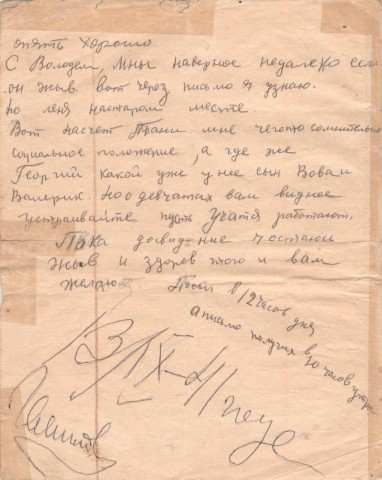 опять хорошо
С Володей, мны наверное недалеко если
он жыв вот через письмо я узнаю.
но леня на старом месте.
Вот насчет Трани мне чегото сомнительно
социальное положение, а где же
Георгий какой уже у нее сын Вова или
Валерик. Но о девчатах вам видное
устраивайте пусть учатся работают.
Пока досвидание и остаюсь
жыв и здоров того и вам
желаю
Писал в 12 часов дня
а письмо получил в 10 часов утра
3/IX-41 года